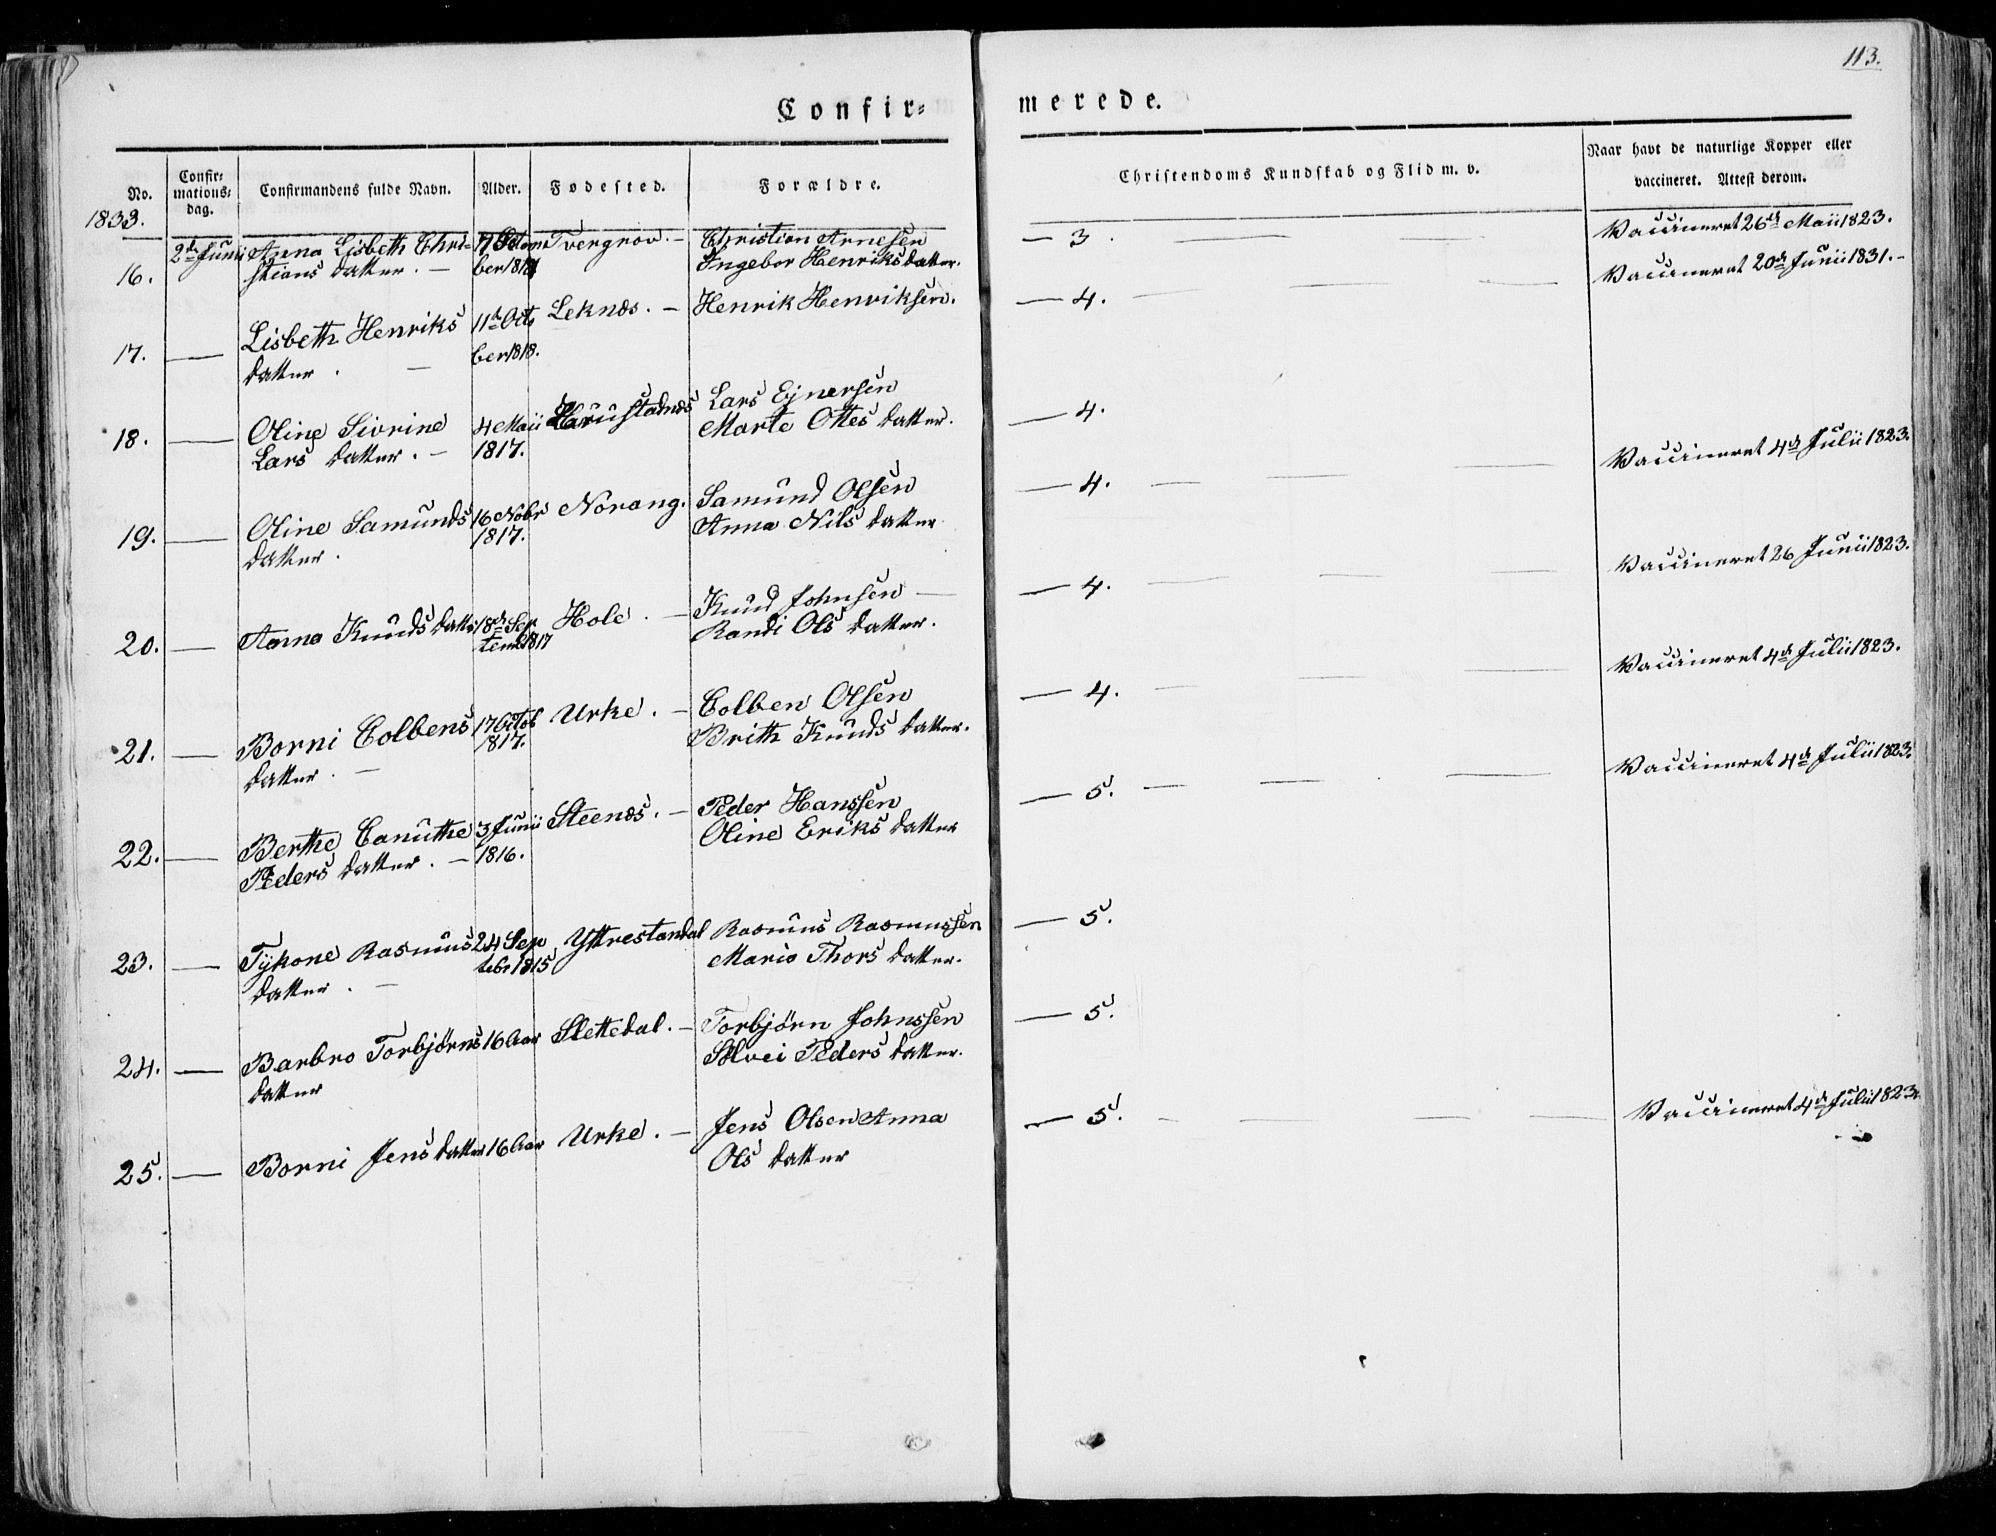 113.
Confir= merede.
No.
Confir=
mations=
dag.
Confirmandens fulde Navn.
Alder.
Fødested.
Forældre.
Christendoms Kundskab og Flid m. v.
Naar havt de naturlige Kopper eller
vaccineret. Attest derom.
1833.
16. 2de Junii Anna Lisbeth Chri- Tvergrov. - Christian Arnesen - 3. Vaccineret 26de Maii 1823.
stians datter. - ber 1818 Ingebor Henriksdatter.
17. Lisbeth Henriks 11te Octo Leknæs. - Henrik Henriksen. - 4. Vaccineret 20de Junii 1831. -
datter. - ber 1818.
18. Oline Sivrine 4 Maii Lars Ejnersen - 4.
Lars datter. - 1817. Marte Ottes datter. Vaccineret 4de Julii 1823.
19. Oline Samunds 16 Nobr Norang. Samund Olsen - 4.
datter. 1817. Anna Nils datter Vaccineret 26 Junii 1823.
20. Anna Knuds datter 18de Sep Hole. - Knud Johnsen - 4.
temb 1817 Randi Ols datter. Vaccineret 4de Julii 1823.
21. Borni Colbens 17 Octob Urke. - Colben Olsen - 4.
datter. - 1817. Brith Knuds datter. Vaccineret 4de Julii 1823.
22. Berthe Canuthe 3 Junii Steenæs. - Peder Hanssen - 5.
Peders datter. - 1816. Oline Eriks datter
23. Tykone Rasmus 24 Sep Yttrestandal Rasmus Rasmussen - 5.
datter. - tebr 1815 Maria Thors datter.
24. Barbro Torbjørns 16 Aar Slettedal. - Torbjörn Johnssen - 5.
datter Solvei Peders datter.
25. Borni Jens datter 16 Aar Urke. - Jens Olsen Anna - 5. Vaccineret 4de Julii 1823.
Ols datter